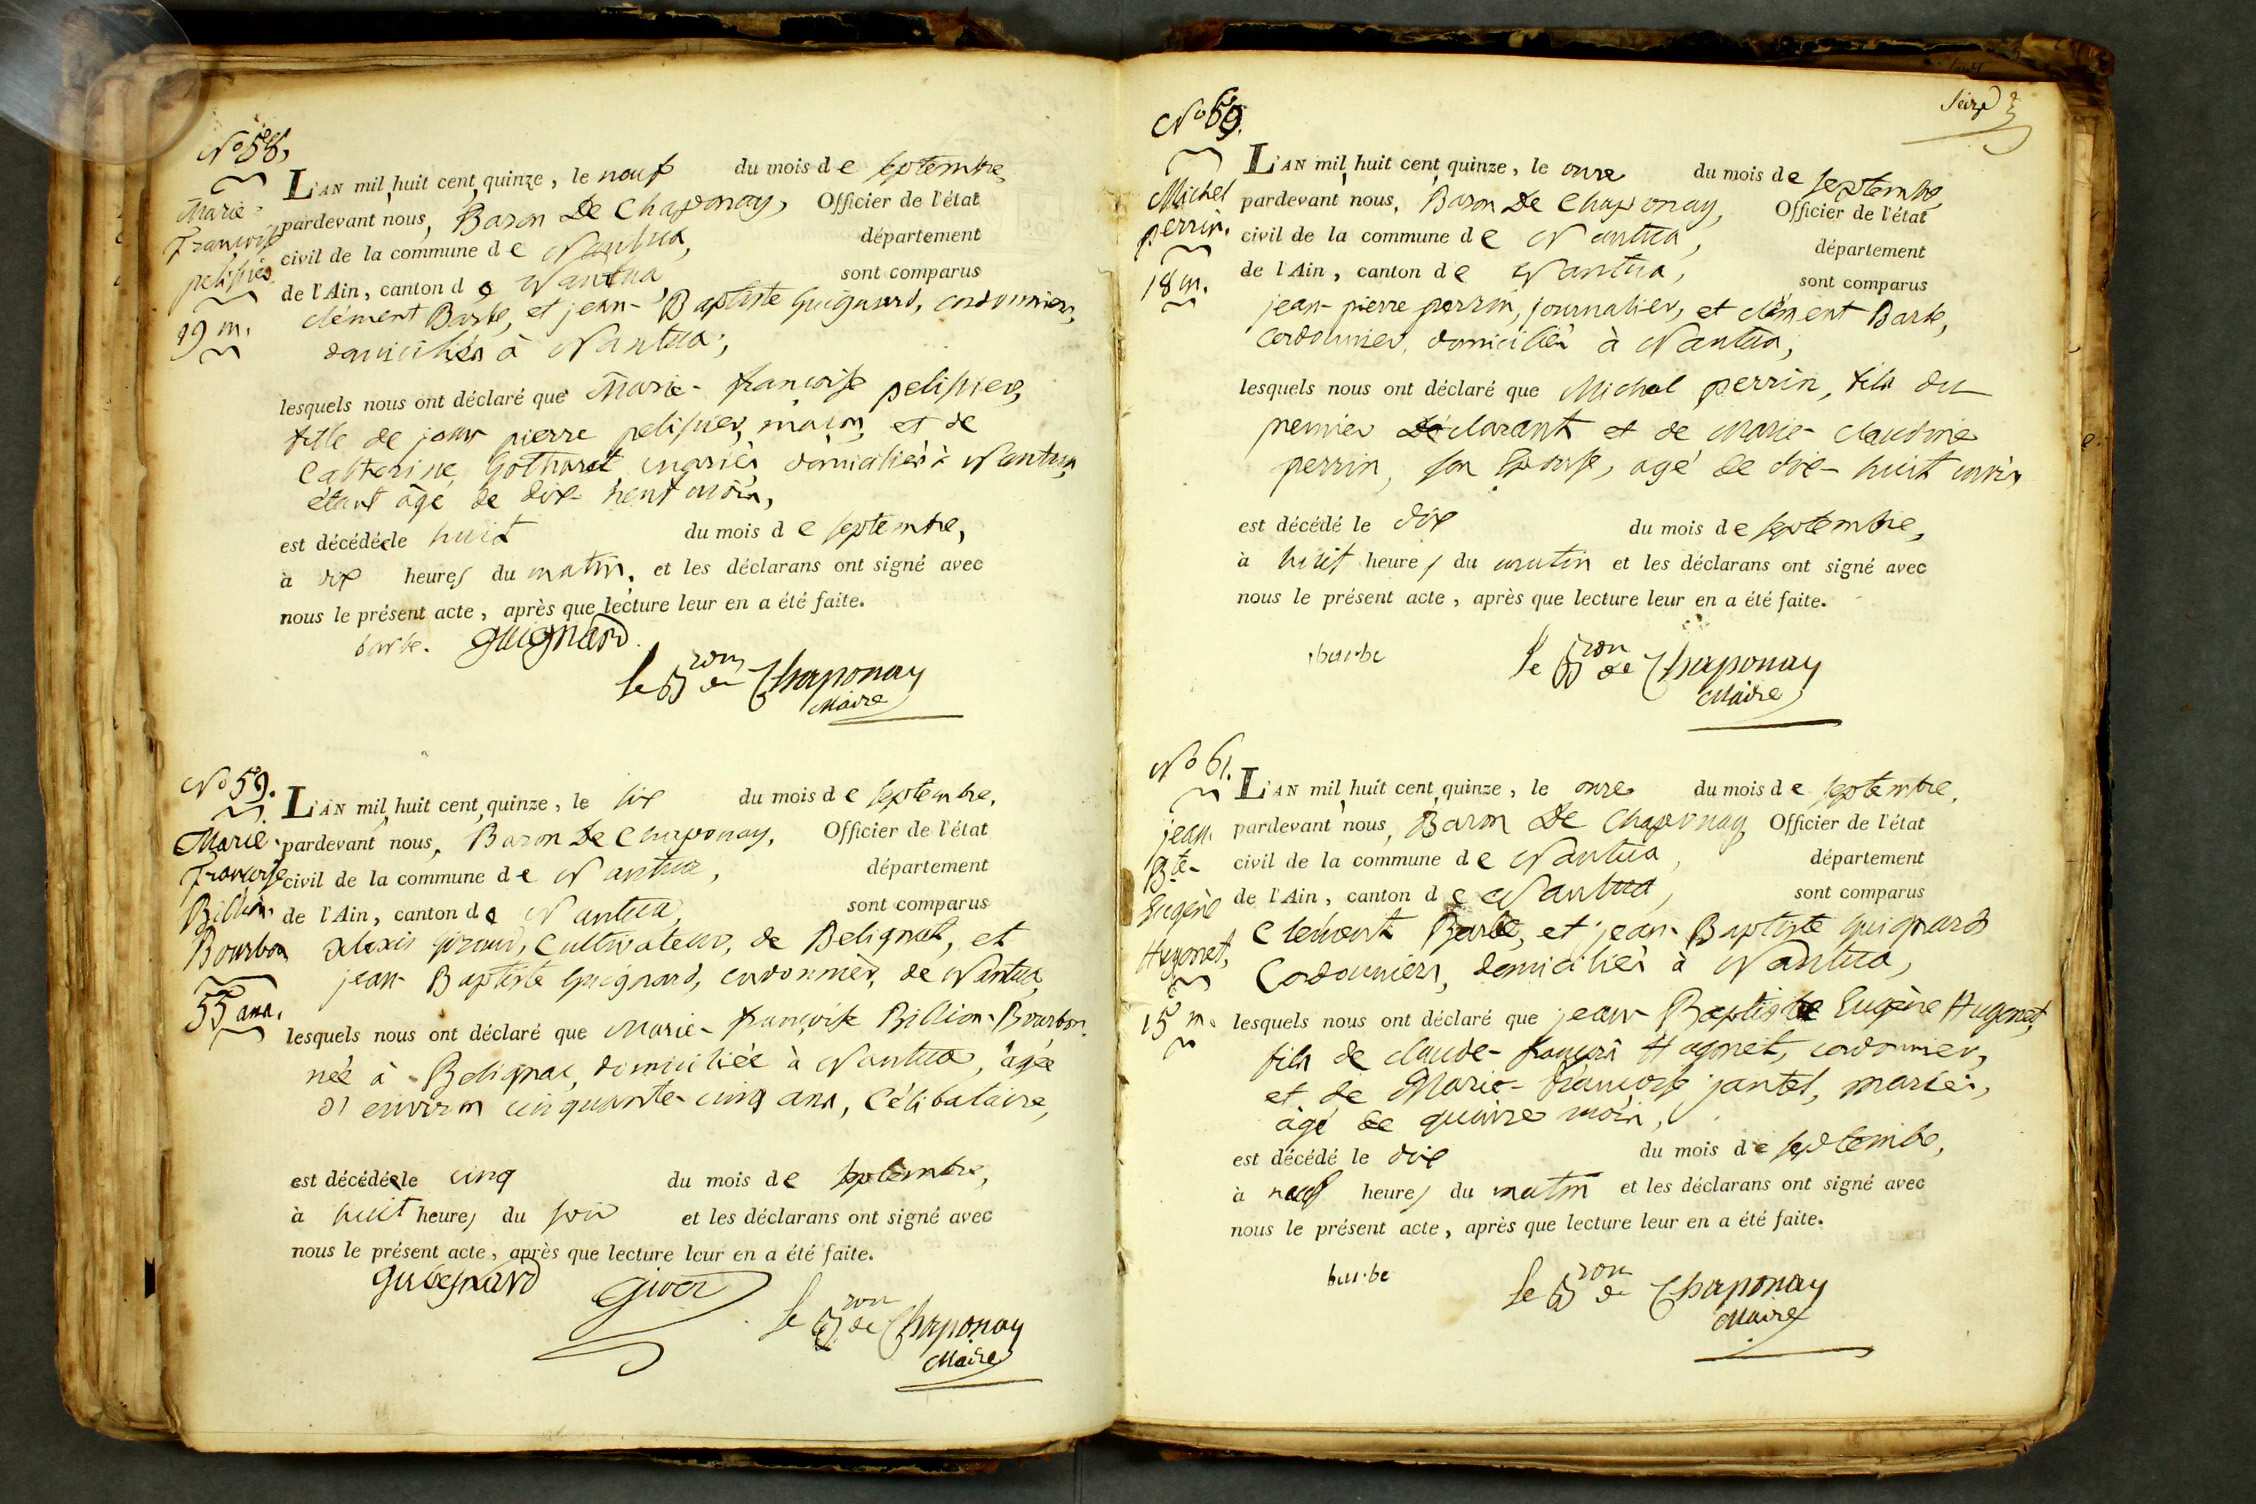 No 58.
Marie-
Françoise
pelissier
19 m.
L'AN mil huit cent quinze, le neuf du mois de septembre,
pardevant nous, Baron De Chaponay, Officier de l'état
civil de la commune de Nantua, département
de l'Ain, canton de Nantua, sont comparus
clément Barbe, et jean-Baptiste Guignard, cordonniers,
domiciliés à Nantua,
lesquels nous ont déclaré que Marie-françoise pelissier,
fille de jean pierre pelissier, maçon, et de
Catherine mariés, domiciliés à Nantua,
étant âgé de dix-neuf mois,
est décédée le huit du mois de septembre,
à dix heures du matin, et les déclarans ont signé avec
nous le présent acte, après que lecture leur en a été faite.
barbe. guignard
le Bron de Chaponay
Maire
No 59.
Marie-
Françoise
Billion-
Bourbon
55 ans.
L'AN mil huit cent quinze, le six du mois de septembre,
pardevant nous, Baron De Chaponay, Officier de l'état
civil de la commune de Nantua, département
de l'Ain, canton de Nantua, sont comparus
Alexis Cultivateur, de Belignat, et
jean-Baptiste Guignard, cordonnier, de Nantua,
lesquels nous ont déclaré que Marie-françoise Billion-Bourbon
née à Belignat, domiciliée à Nantua, âgée
d'environ cinquante-cinq ans, Célibataire,
est décédée le cinq du mois de septembre,
à huit heures du soir et les déclarans ont signé avec
nous le présent acte, après que lecture leur en a été faite.
le Bron de Chaponay
Maire
Seize
No 60.
Michel
perrin.
18 m.
L'AN mil huit cent quinze, le onze du mois de septembre,
pardevant nous, Baron De Chaponay, Officier de l'état
civil de la commune de Nantua, département
de l'Ain, canton de Nantua, sont comparus
jean-pierre perrin, journalier, et clément Barbe,
Cordonnier, domiciliés à Nantua,
lesquels nous ont déclaré que Michel perrin, fils du
premier déclarant et de Marie-claudine
perrin, son Epouse, agé de dix-huit mois
est décédé le dix du mois de septembre,
à huit heures du matin et les déclarans ont signé avec
nous le présent acte, après que lecture leur en a été faite.
barbe
le Bron de Chaponay
Maire
No 61.
jean-
Bte-
Eugène
Hugonet,
15 m.
L'AN mil huit cent quinze, le onze du mois de septembre,
pardevant nous, Baron De Chaponay Officier de l'état
civil de la commune de Nantua, département
de l'Ain, canton de Nantua, sont comparus
Clément Barbe, et jean-Baptiste Guignard
Cordonniers, domiciliés à Nantua,
lesquels nous ont déclaré que jean-Baptiste Eugène Hugonet,
fils de claude-françois Hugonet, cordonnier,
et de Marie-françoise jantet, mariés,
âgé de quinze mois,
est décédé le dix du mois de septembre,
à neuf heures du matin et les déclarans ont signé avec
nous le présent acte, après que lecture leur en a été faite.
barbe
le Bron de Chaponay
Maire